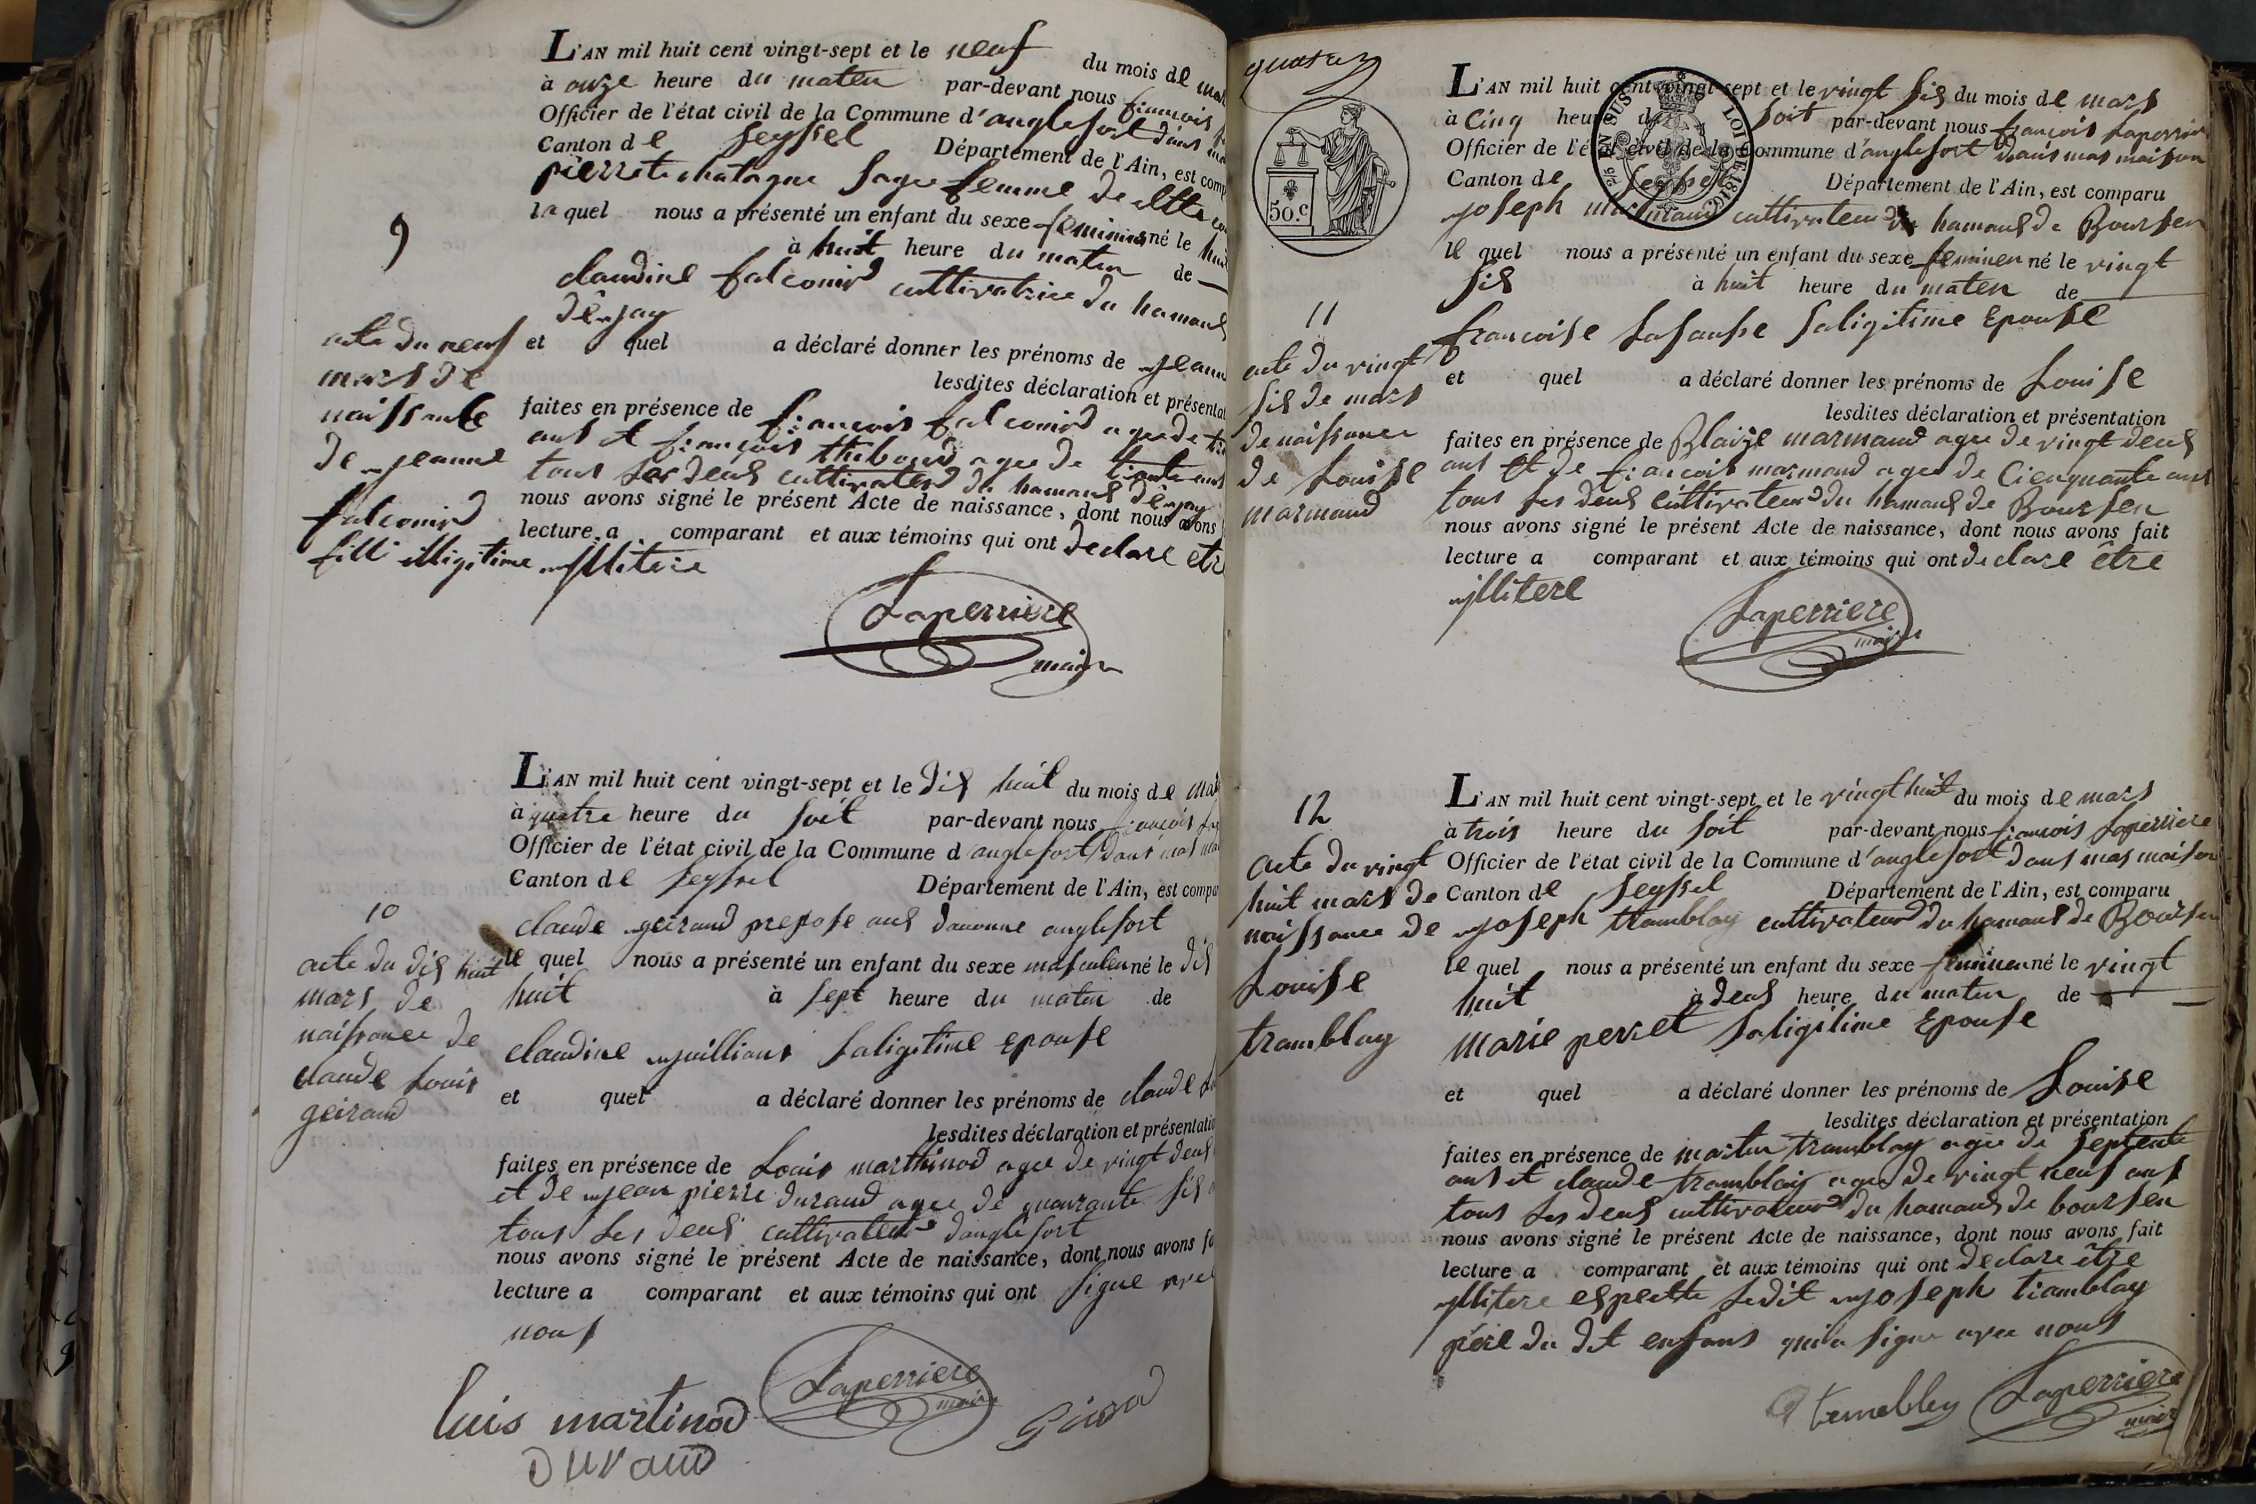 L'AN mil huit cent vingt-sept et le neuf du mois de mar
à onze heure du maten par-devant nous francois
Officier de l'état civil de la Commune d'anglefort dans ma
Canton de seyssel Département de l'Ain, est comp
pierrete chatagne sage femme de cette co
la quel nous a présenté un enfant du sexe feminin né le huit
à huit heure du maten de
claudine falconid cultivatrice du hamaud
dêjay
et quel a déclaré donner les prénoms de jeanne
lesdites déclaration et présentat
faites en présence de francois falconid agee de
ans et francois thiboud agee de trente ans
tous les deus cultivateurs du hamaud dêjay
nous avons signé le présent Acte de naissance, dont nous avons
lecture a comparant et aux témoins qui ont declare etre
jllitere
Laperriere
maire
9
acte du neuf
mars de
naissance
de jeanne
falconid
fille illigitime
L'AN mil huit cent vingt-sept et le dis huit du mois de mar
à quatre heure du soit par-devant nous francois
Officier de l'état civil de la Commune d anglefort dans mas
Canton de seyssel Département de l'Ain, est compa
claude geiraud prepose aus douonne anglefort
le quel nous a présenté un enfant du sexe masculen né le dis
huit à sept heure du maten de
claudine juilliant saligitime epouse
et quel a déclaré donner les prénoms de claude
lesdites déclaration et présentatio
faites en présence de Louis marthinod agee de vingt deus
et de jean pierre duraud agee de quarante sis
tous les deus cultivateurs danglefort
nous avons signé le présent Acte de naissance, dont nous avons fa
lecture a comparant et aux témoins qui ont signe avec
nous
luis martinod
Laperriere
maire
duraud
10
acte du dis huit
mars de
naissance de
claude Louis
geiraud
50. c
EN SUS
LOI DE 1816
L'AN mil huit cent vingt-sept et le vingt sis du mois de mars
à Cinq heure du soit par-devant nous francois Laperriere
Officier de l'état civil de la Commune d'anglefort dans mas maison
Canton de seyssel Département de l'Ain, est comparu
joseph marmand cultivateur du hamaud de Boursen
le quel nous a présenté un enfant du sexe feminen né le vingt
sis à huit heure du maten de
francoise Lasausse saligitime Epouse
et quel a déclaré donner les prénoms de Louise
lesdites déclaration et présentation
faites en présence de Blaize marmand agee de vingt deus
ans et de francois marmand agee de Cienquante ans
tous les deus cultivateurs du hamaud de Boursen
nous avons signé le présent Acte de naissance, dont nous avons fait
lecture a comparant et aux témoins qui ont declare être
jllitere
Laperriere
maire
11
acte du vingt
sis de mars
de naissance
de Louise
marmand
L'AN mil huit cent vingt-sept et le vingt huit du mois de mars
à trois heure du soit par-devant nous francois Laperriere
Officier de l'état civil de la Commune d'anglefort dans mas maison
Canton de seyssel Département de l'Ain, est comparu
joseph tramblay cultivateur du hamaud de Boursen
le quel nous a présenté un enfant du sexe feminen né le vingt
huit à deus heure du maten de
marie perret saligitime Epouse
et quel a déclaré donner les prénoms de Louise
lesdites déclaration et présentation
faites en présence de martin tramblay agee de septente
ans et claude tramblay agee de vingt neuf ans
tous les deus cultivateurs du hamaud de boursen
nous avons signé le présent Acte de naissance, dont nous avons fait
lecture a comparant et aux témoins qui ont declare être
jllitere espectte ledit joseph tramblay
père du dit enfans qui a signe avec nous
trembley
Laperriere
maire
12
acte du vingt
huit mars de
naissance de
Louise
tramblay